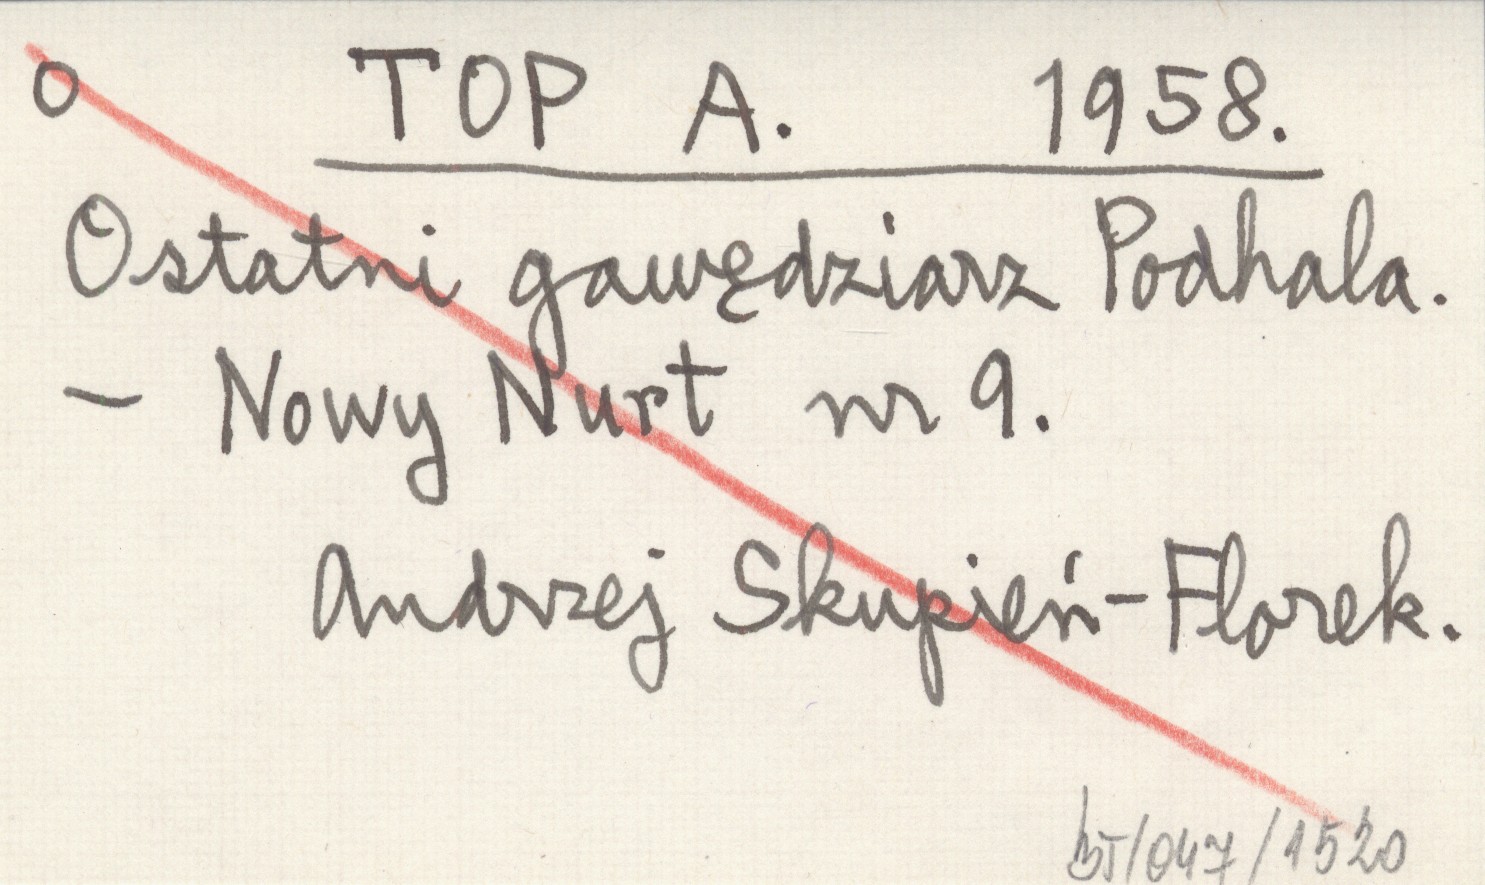 o TOP A. 1958.
Ostatni gawędziarz Podhala.
– Nowy Nurt nr 9.
Andrzej Skupień-Florek.
BJ/047/1520